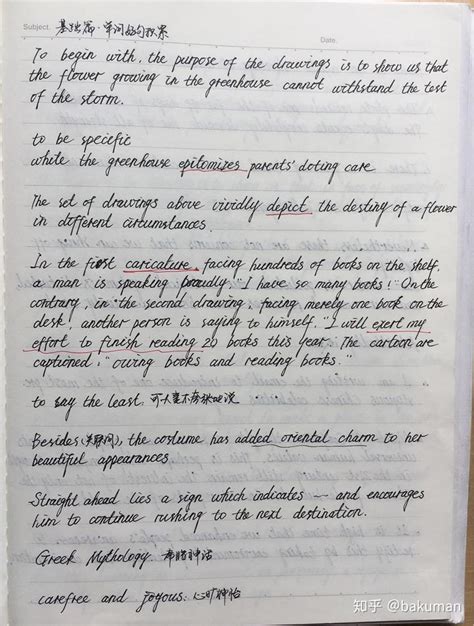 Subject. 基础篇·单词好句积累
Date.
To begin with, the purpose of the drawings is to show us that
the flower growing in the greenhouse cannot withstand the test
of the storm.
to be specific
while the greenhouse epitomizes parents' doting care
The set of drawings above vividly depict the destiny of a flower
in different circumstances.
In the first caricature, facing hundreds of books on the shelf,
a man is speaking proudly "I have so many books!" On the
contrary, in the second drawing, facing merely one book on the
desk, another person is saying to himself, "I will exert my
effort to finish reading 20 books this year. The cartoon are
captioned: "owing books and reading books."
to say the least,
Besides (关联词), the costume has added oriental charm to her
beautiful appearances.
Straight ahead lies a sign which indicates — and encourages
him to continue rushing to the next destination.
Greek Mythology 希腊神话
carefree and joyous: 心旷神怡
知乎 @bakuman